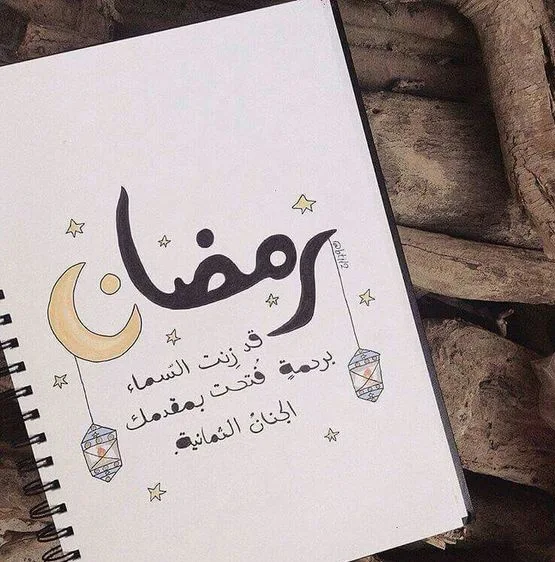 رمضان
@bti12
قد زِنت السماء
برحمةٍ فُتحت بمقدمك
الجنانُ الثمانية